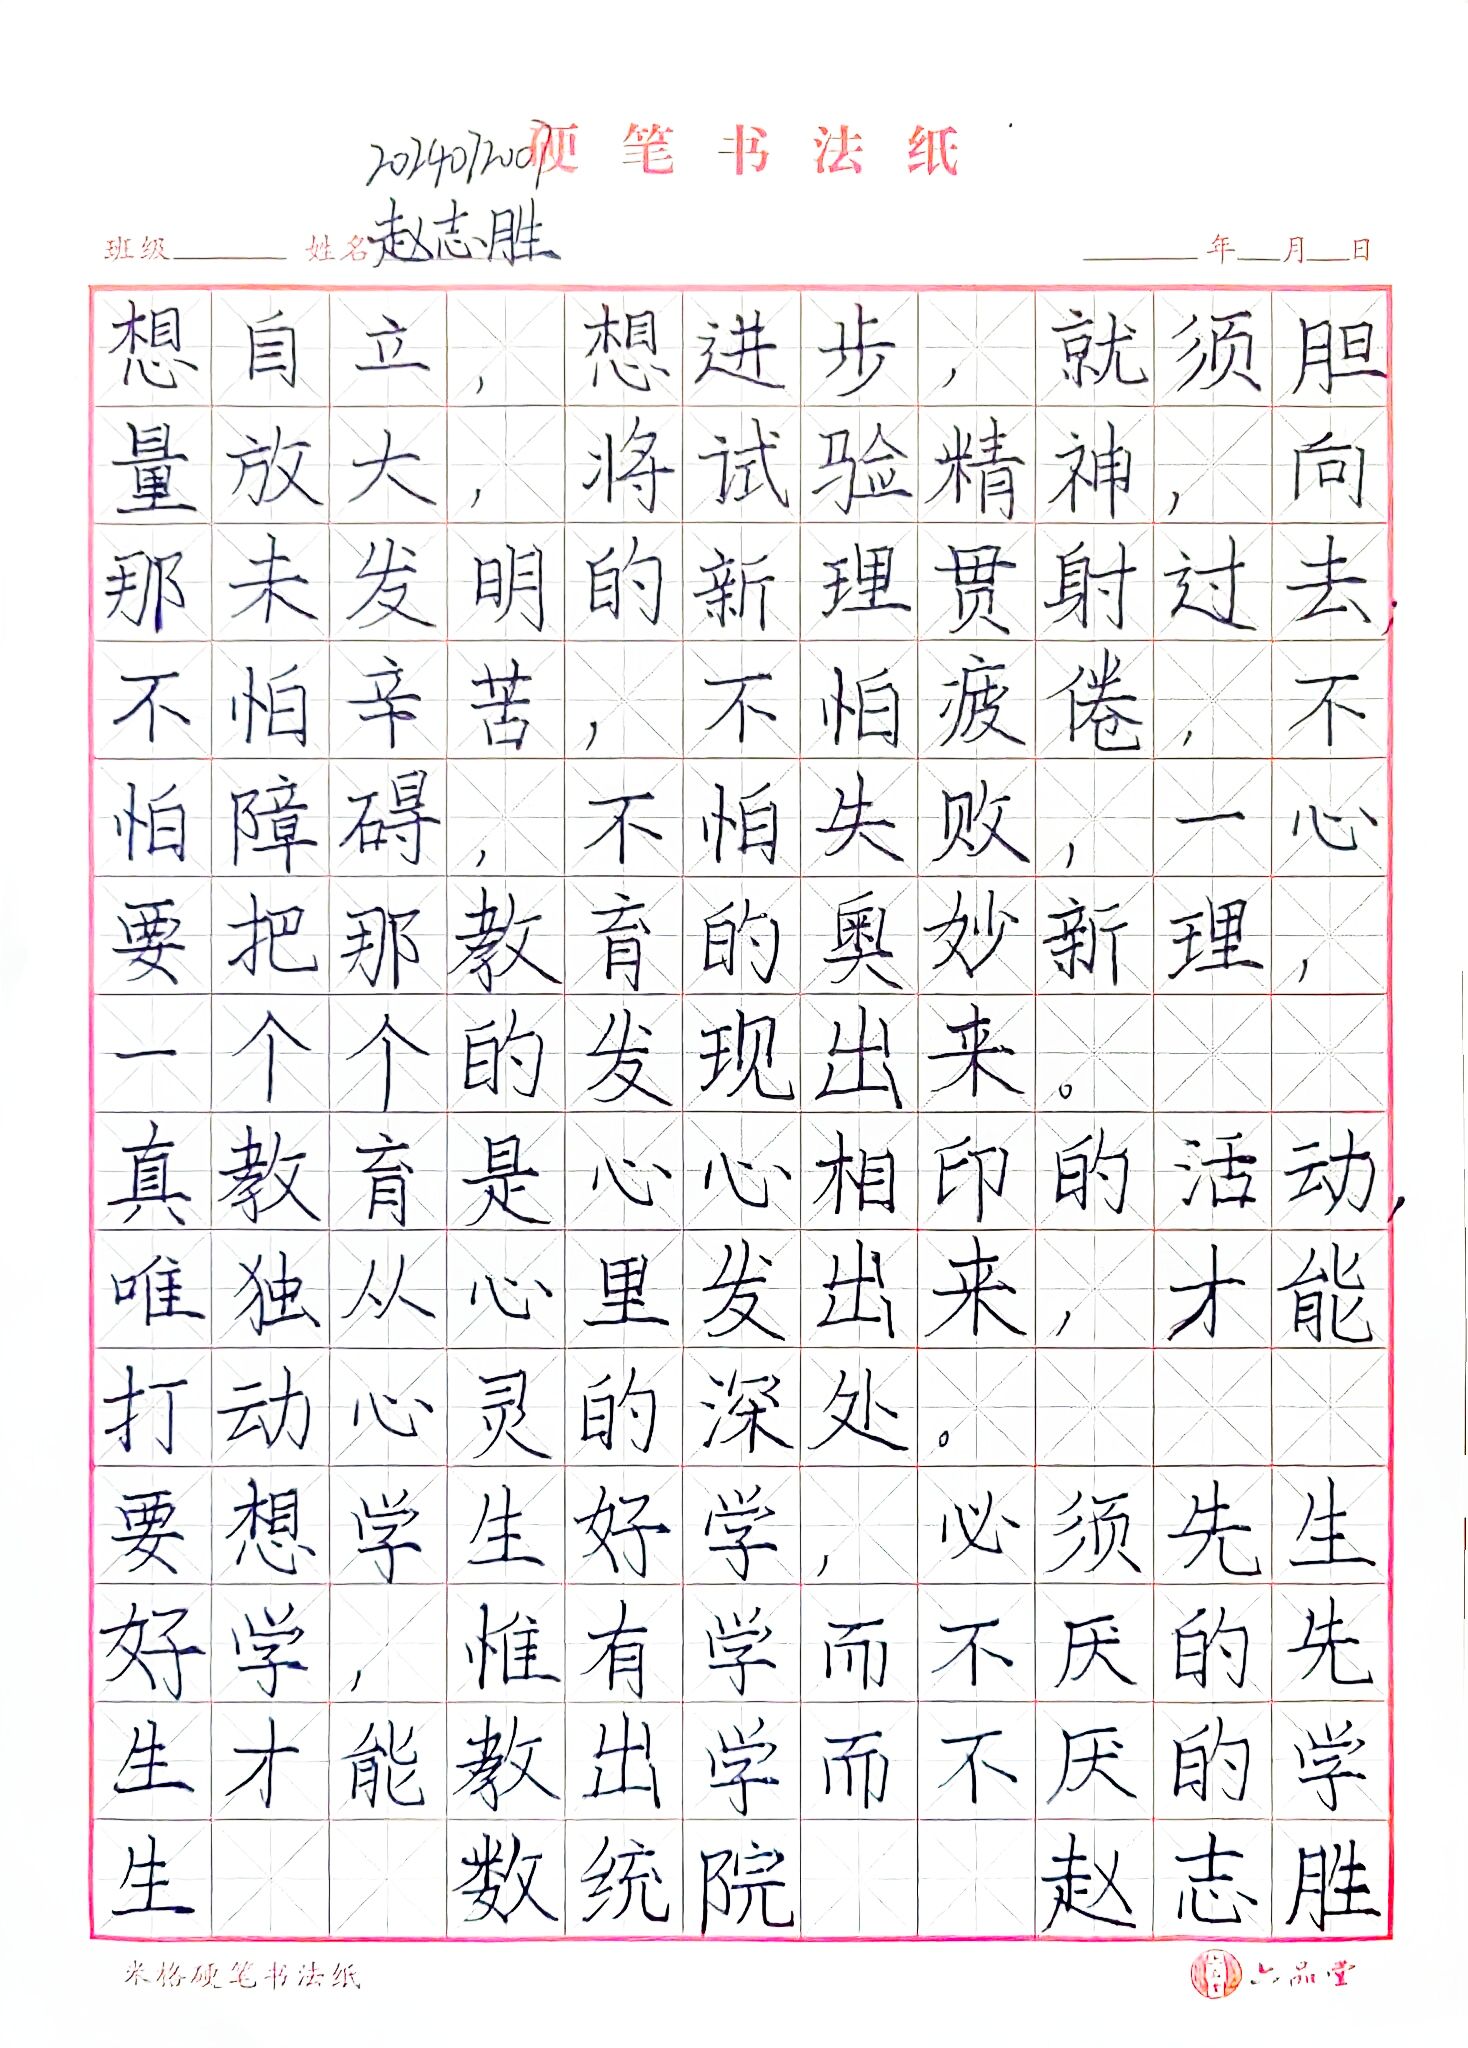 硬笔书法纸
2024072007
班级 姓名 赵志胜 年 月 日
想自立，想进步，就须胆
量放大，将试验精神，向
那未发明的新理贯射过去；
不怕辛苦，不怕疲倦，不
怕障碍，不怕失败，一心
要把那教育的奥妙新理，
一个个的发现出来。
真教育是心心相印的活动，
唯独从心里发出来，才能
打动心灵的深处。
要想学生好学，必须先生
好学，惟有学而不厌的先
生才能教出学而不厌的学
生 数统院 赵志胜
米格硬笔书法纸 六品堂